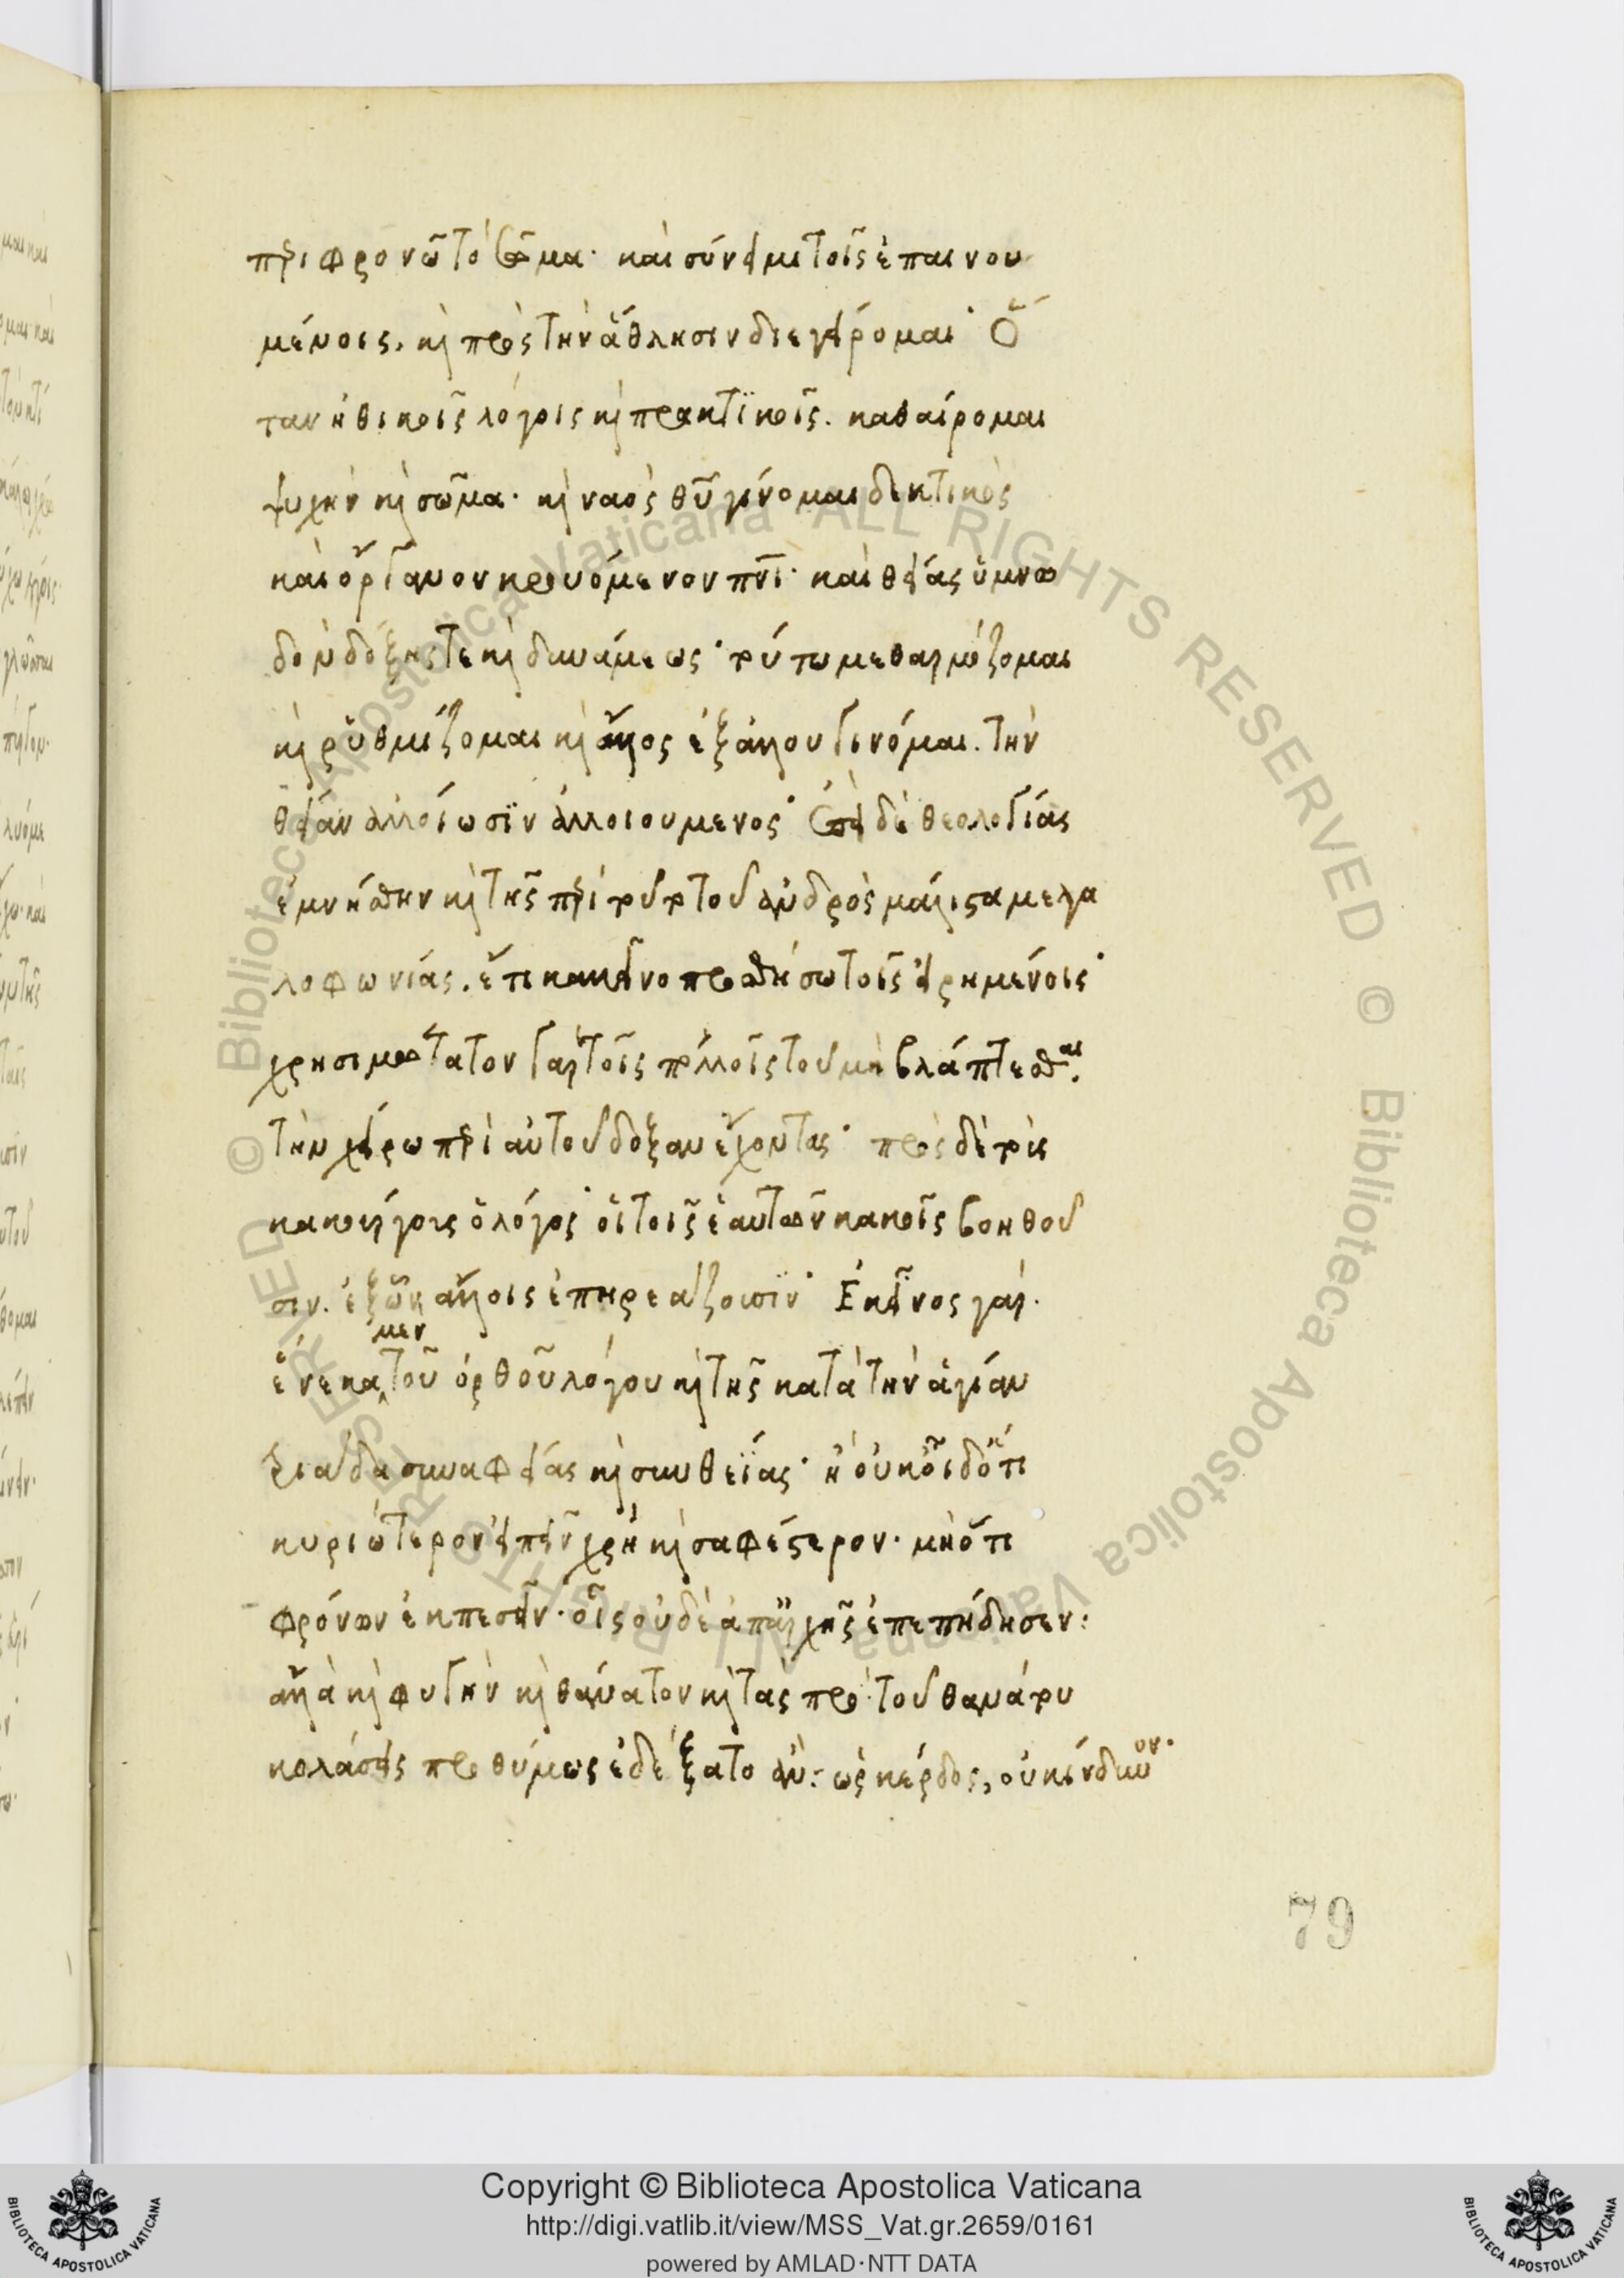 περιφρονῶ τὸ σῶμα· καὶ σύνειμι τοῖς ἐπαινου
μένοις, κὶ πρὸς τὴν ἄθλησιν διεγείρομαι· Ὅ
ταν ἠθικοῖς λόγοις κὶ πρακτϊκοῖς. καθαίρομαι
ψυχὴν κὶ σῶμα· κὶ ναὸς θῦ γίνομαι δεκτικὸς
καὶ ὄργανον κρουόμενον πνῖ· καὶ θείας ὑμνω
δὸν δόξης τε κὶ δυνάμεως· τούτω μεθαρμόζομαι
κὶ ῥυθμίζομαι κὶ ἄλλος ἐξ ἄλλου γινόμαι. τὴν
θείαν ἀλλοίωσϊν ἀλλοιουμενος· Ἐπεὶ δὲ θεολογίας
ἐμνήσθην κὶ τῆς περὶ τοῦτο τοῦ ἀνδρὸς μάλιστα μεγα
λοφωνίας. ἔτι κακεῖνο προσθήσω τοῖς εἰρημένοις·
χρησιμώτατον γὰρ τοῖς πολλοῖς τοῦ μὴ βλάπτεσθαι.
τὴν χείρω περὶ αὐτοῦ δοξαν ἔχοντας· πρὸς δὲ τοὺς
κακούργους ὁ λόγος· οἳ τοῖς ἑαυτῶν κακοῖς βοηθοῦ
σιν. ἐξ ὧν ἄλλοις ἐπηρεάζουσϊν· Ἐκεῖνος γὰρ.
ἕνεκα μὲν τοῦ ὀρθοῦ λόγου κὶ τῆς κατὰ τὴν ἁγίαν
τριάδα συναφείας κὶ συνθεΐας· ἢ οὐκ οἶδ ὅτι
κυριώτερον εἰπεῖν χρὴ κὶ σαφέστερον· μὴ ὅτι
θρόνων ἐκπεσεῖν· οἷς οὐδὲ ἀπ ἀρχῆς ἐπεπήδησεν:
ἀλλὰ κὶ φυγὴν κὶ θάνατον κὶ τὰς πρὸ τοῦ θανάτου
κολάσεις προθύμως ἐδέξατο ἄν: ὡς κέρδος, οὐ κίνδυνον·
79
Copyright © Biblioteca Apostolica Vaticana
http://digi.vatlib.it/view/MSS_Vat.gr.2659/0161
powered by AMLAD·NTT DATA